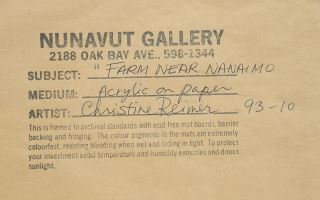 NUNAVUT GALLERY
2188 OAK BAY AVE., 598-1344
SUBJECT: "FARM NEAR NANAIMO
MEDIUM: Acrylic on paper
ARTIST: Christine Reimer 93-10
This is framed to archival standards with acid free mat boards, barrier
backing and hinging. The colour pigments in the mats are extremely
colourfast, resisting bleeding when wet and fading in light. To protect
your investment avoid temperature and humidity extremes and direct
sunlight.